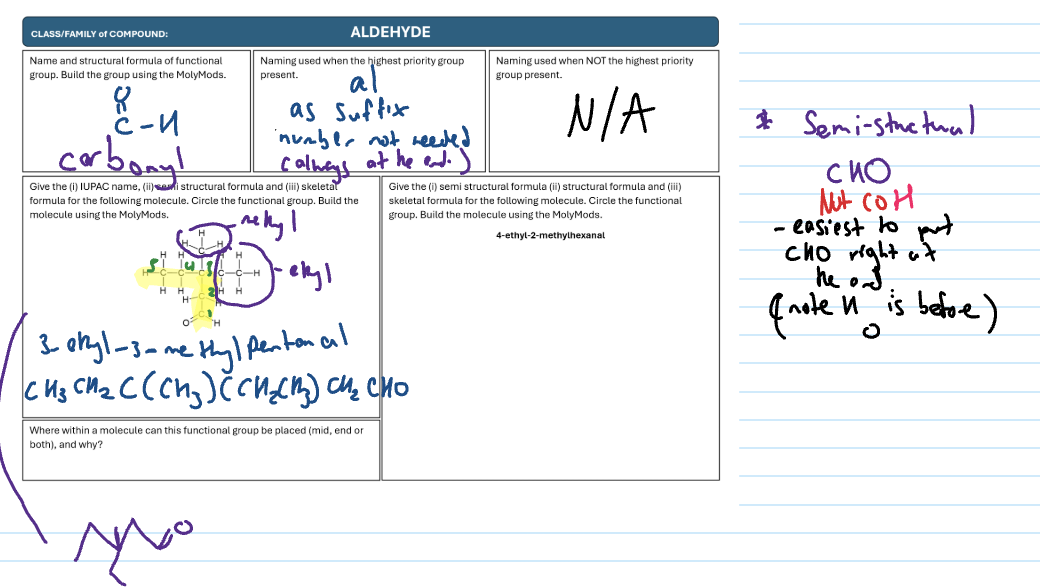 CLASS/FAMILY of COMPOUND:
ALDEHYDE
Name and structural formula of functional
group. Build the group using the MolyMods.
O
C-H
carbonyl
Naming used when the highest priority group
present.
al
as suffix
number not needed
(always at the end.)
Naming used when NOT the highest priority
group present.
N/A
Give the (i) IUPAC name, (ii) semi structural formula and (iii) skeletal
formula for the following molecule. Circle the functional group. Build the
molecule using the MolyMods.
methyl
H
H C H
H H H H
5 4 3
H C C C C C H
ethyl
H H H H
H C 2 H
C 1
O H
3-ethyl-3-methylpentanal
CH3CH2C(CH3)(CH2CH3)CH2CHO
Where within a molecule can this functional group be placed (mid, end or
both), and why?
O
Give the (i) semi structural formula (ii) structural formula and (iii)
skeletal formula for the following molecule. Circle the functional
group. Build the molecule using the MolyMods.
4-ethyl-2-methylhexanal
* Semi-structural
CHO
Not COH
- easiest to put
CHO right at
the end
(note H is before
O)